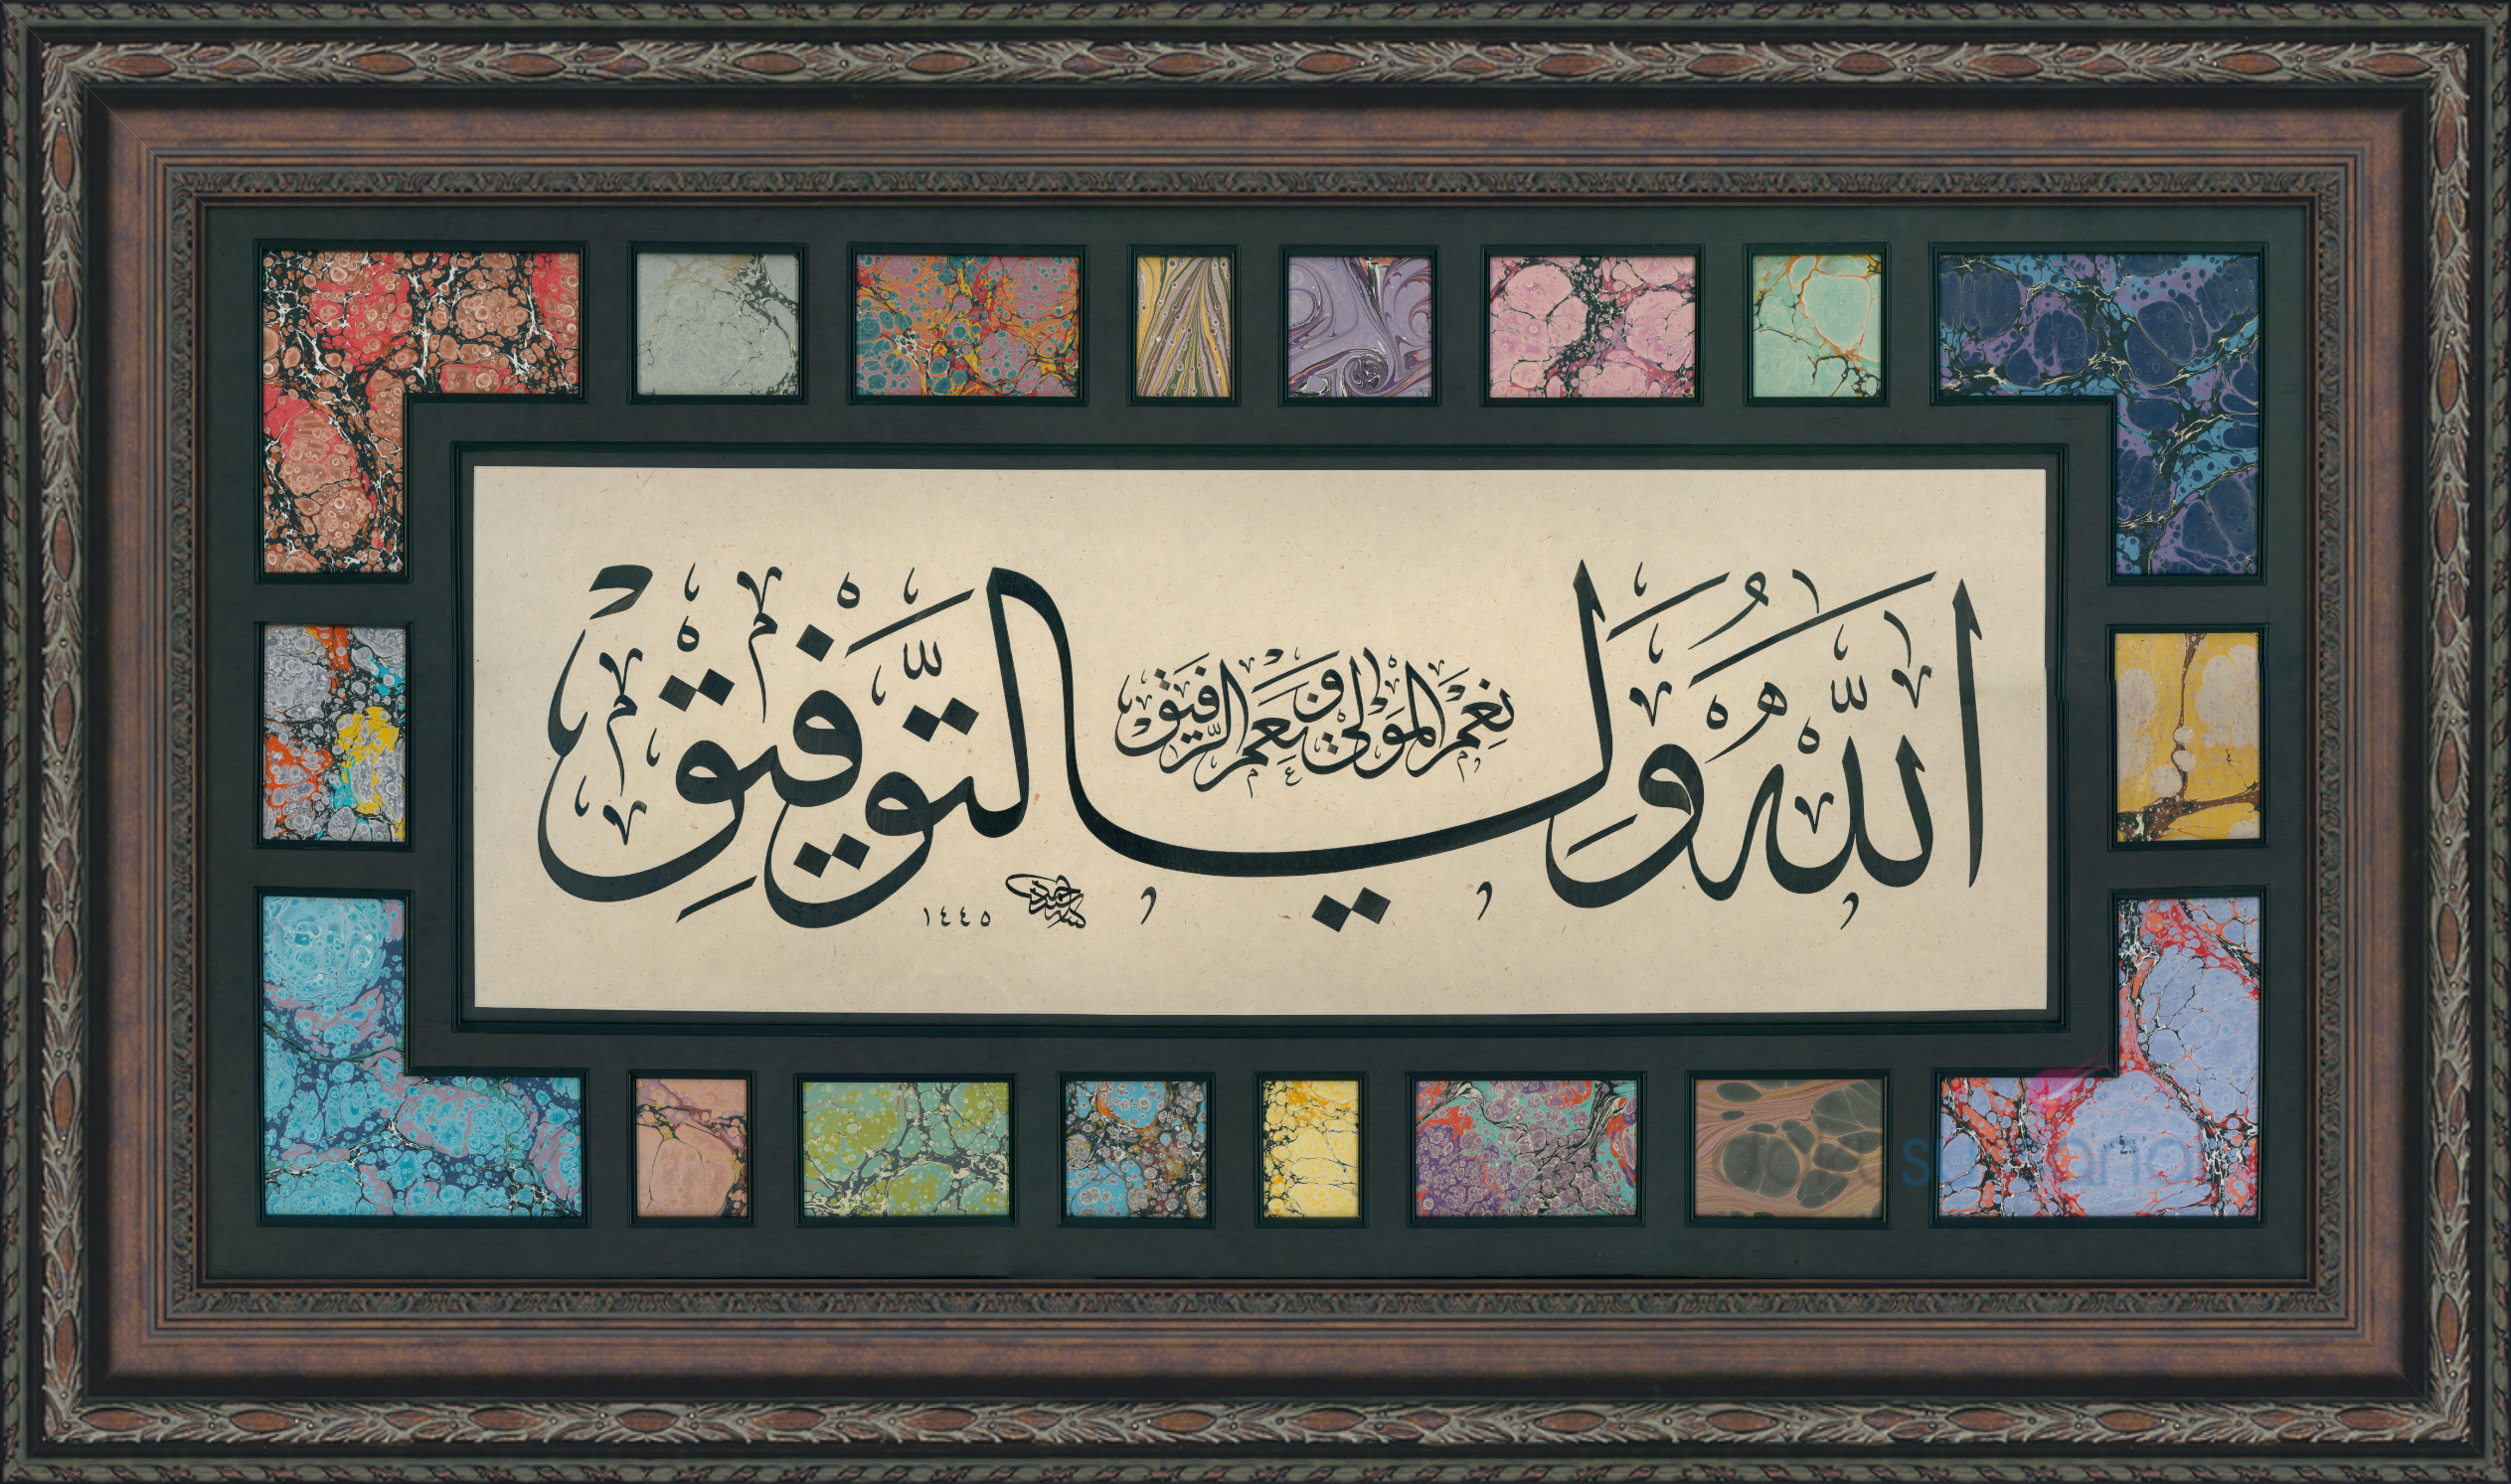 اللّٰهُ وَلِيُّ التَّوْفِيقِ
نِعْمَ الْمَوْلٰى وَنِعْمَ الرَّفِيقُ
١٤٤٥